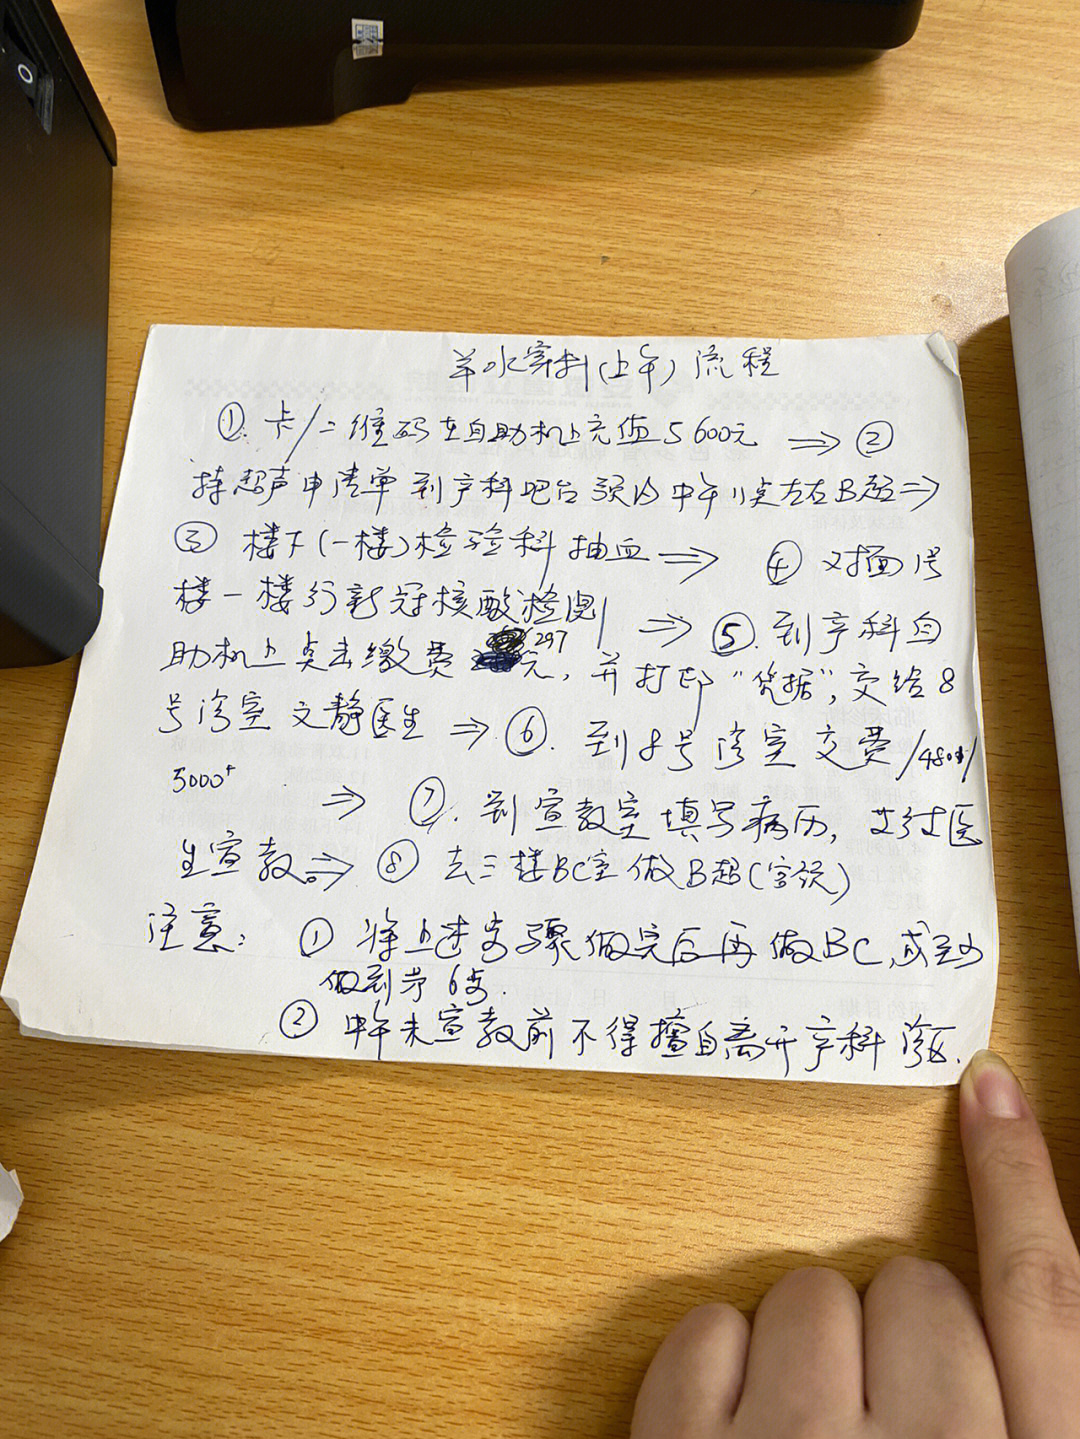 羊水穿刺(上午)流程
①.卡/二维码在自助机上充值5600元 ⇒ ②
持超声申请单到产科吧台预约中午11点左右B超⇒
③ 楼下(一楼)检验科抽血⇒ ④ 对面1号
楼一楼行新冠核酸检测 ⇒ ⑤.到产科自
助机上点击缴费297元,并打印“凭据”,交给8
号诊室文静医生 ⇒ ⑥.到8号诊室交费/4800/
5000+ ⇒ ⑦.到宣教室填写病历,
生宣教。⇒ ⑧ 去三楼BC室做B超(穿说)
注意: ① 将上述步骤做完后再做BC,或至少
做到第6步.
② 中午未宣教前不得擅自离开产科诊区.